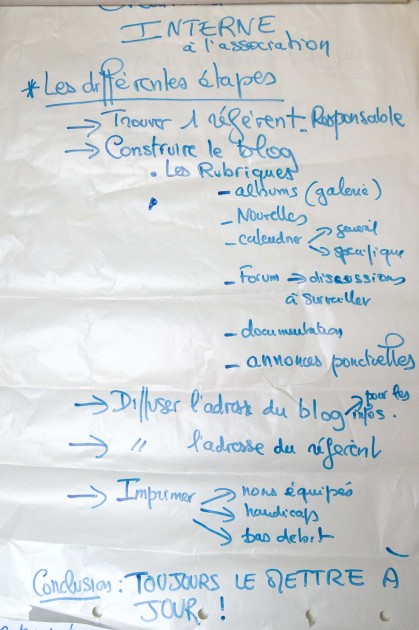 INTERNE
à l'association
* Les différentes étapes
→ Trouver 1 référent - Responsable
→ Construire le blog
• Les Rubriques
- albums (galerie)
- Nouvelles
- calendrier → général
→ spécifique
- Forum → discussions
à surveiller
- documentation
- annonces ponctuelles
→ Diffuser l'adresse du blog → pour les infos.
→ " l'adresse du référent
→ Imprimer → nons équipés
→ handicaps
→ bas débit
Conclusion : TOUJOURS LE METTRE A
JOUR !